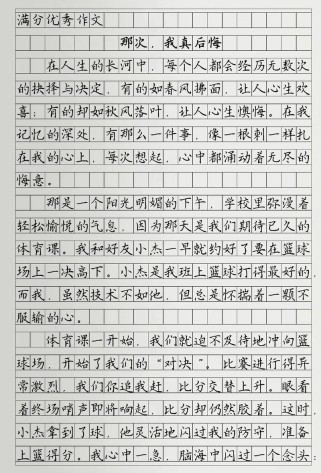 满分优秀作文
那次，我真后悔
在人生的长河中，每个人都会经历无数次
的抉择与决定，有的如春风拂面，让人心生欢
喜；有的却如秋风落叶，让人心生懊悔。在我
记忆的深处，有那么一件事，像一根刺一样扎
在我的心上，每次想起，心中都涌动着无尽的
悔意。
那是一个阳光明媚的下午，学校里弥漫着
轻松愉悦的气息，因为那天是我们期待已久的
体育课。我和好友小杰一早就约好了要在篮球
场上一决高下。小杰是我班上篮球打得最好的，
而我，虽然技术不如他，但总是怀揣着一颗不
服输的心。
体育课一开始，我们就迫不及待地冲向篮
球场，开始了我们的“对决”。比赛进行得异
常激烈，我们你追我赶，比分交替上升。眼看
着终场哨声即将响起，比分却仍然胶着。这时，
小杰拿到了球，他灵活地闪过我的防守，准备
上篮得分。我心中一急，脑海中闪过一个念头：